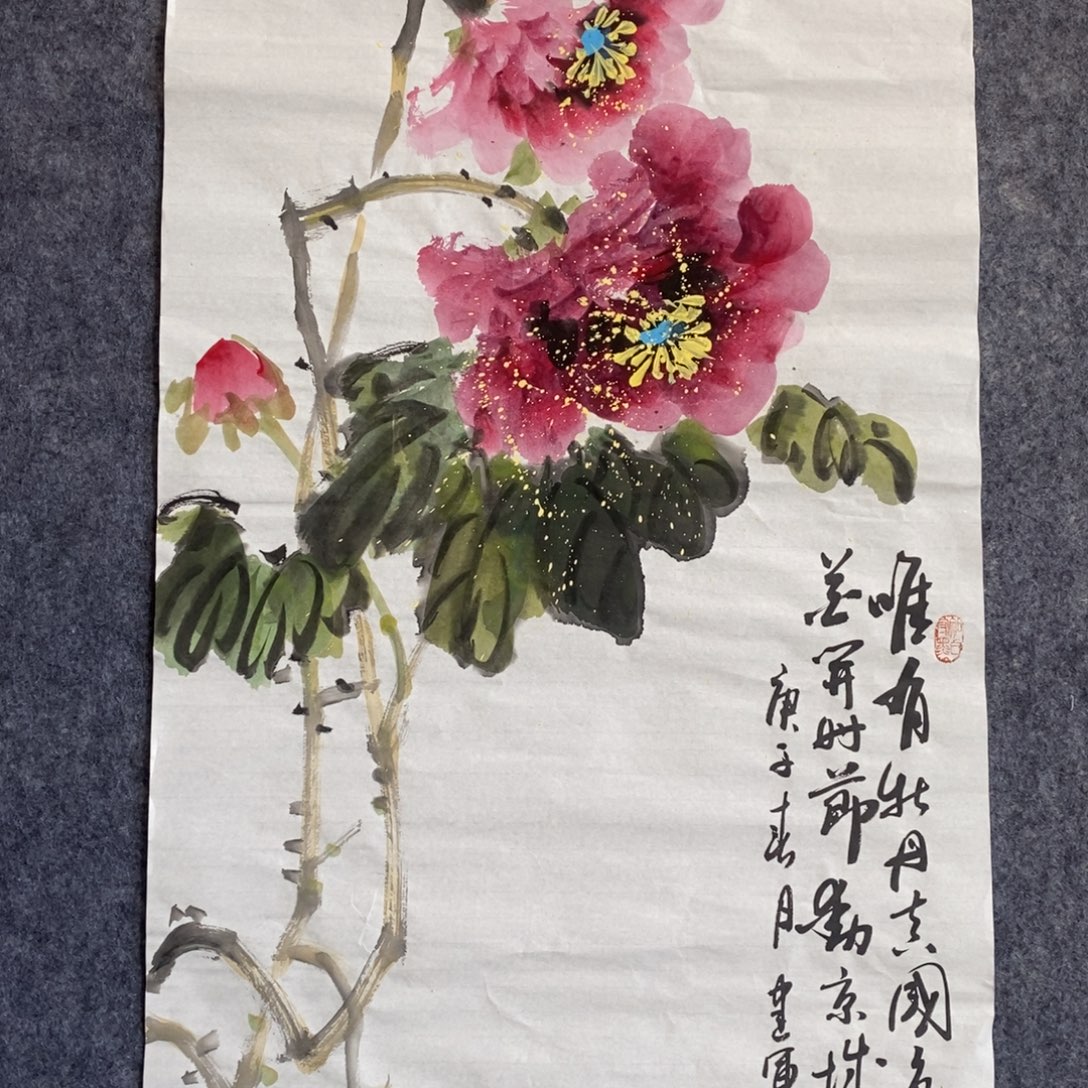 唯有牡丹真國色
花開时節動京城
庚子春月